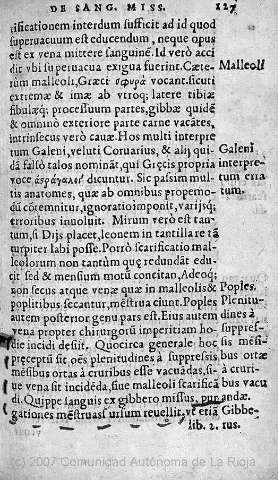 DE SANG. MISS. 127
rificationem interdum sufficit ad id quod
superuacuum est educendum, neque opus
est ex vena mittere sanguinē. Id verò acci
dit vbi superuacua exigua fuerint. Cæte-
rùm malleoli, Græci σφυρὰ vocant. sicuti
extremæ & imæ ab vtroq; latere tibiæ
fibulæq; processuum partes, gibbæ quidē
& omnino exteriore parte carne vacātes,
intrinsecus verò cauæ. Hos multi interpre
tum Galeni, veluti Coruarius, & alij qui-
dā falsò talos nomināt, qui Gręcis propria
voce ἀσράγαλοι dicuntur. Sic passim mul-
tis anatomes, quæ ab omnibus propemo-
dū cōtemnitur, ignoratio imponit, varijsq;
erroribus inuoluit. Mirum verò est tan-
tum, si Dijs placet, leonem in tantillare tā
turpiter labi posse. Porrò scarificatio mal-
leolorum non tantùm quę redundāt edu-
cit sed & mensium motū concitan, Adeoq;
non secus atque venæ quæ in malleolis &
poplitibus secantur, mēstrua ciunt. Poples
autem posterior genu pars est. Eius autem
vena propter chirurgorū imperitiam ho-
die incidi desiit. Quocirca generale hoc
præceptū sit oēs plenitudines à suppressis
mēsibus ortas à cruribus esse vacuādas, si-
ue vena sit incidēda, siue malleoli scarificā
di. Quippe sanguis ex gibbero missus, pur
gationes mēstruas sursum reuellit. vt etiā
lib. 2.
Malleoli
Galeni
interpre-
tum erra
tum.
Poples.
Plenitu-
dines à
suppres-
sis men-
sibus ortæ
à cruri-
bus vacu
andæ.
Gibbe-
rus.
(c) 2007 Comunidad Autónoma de La Rioja